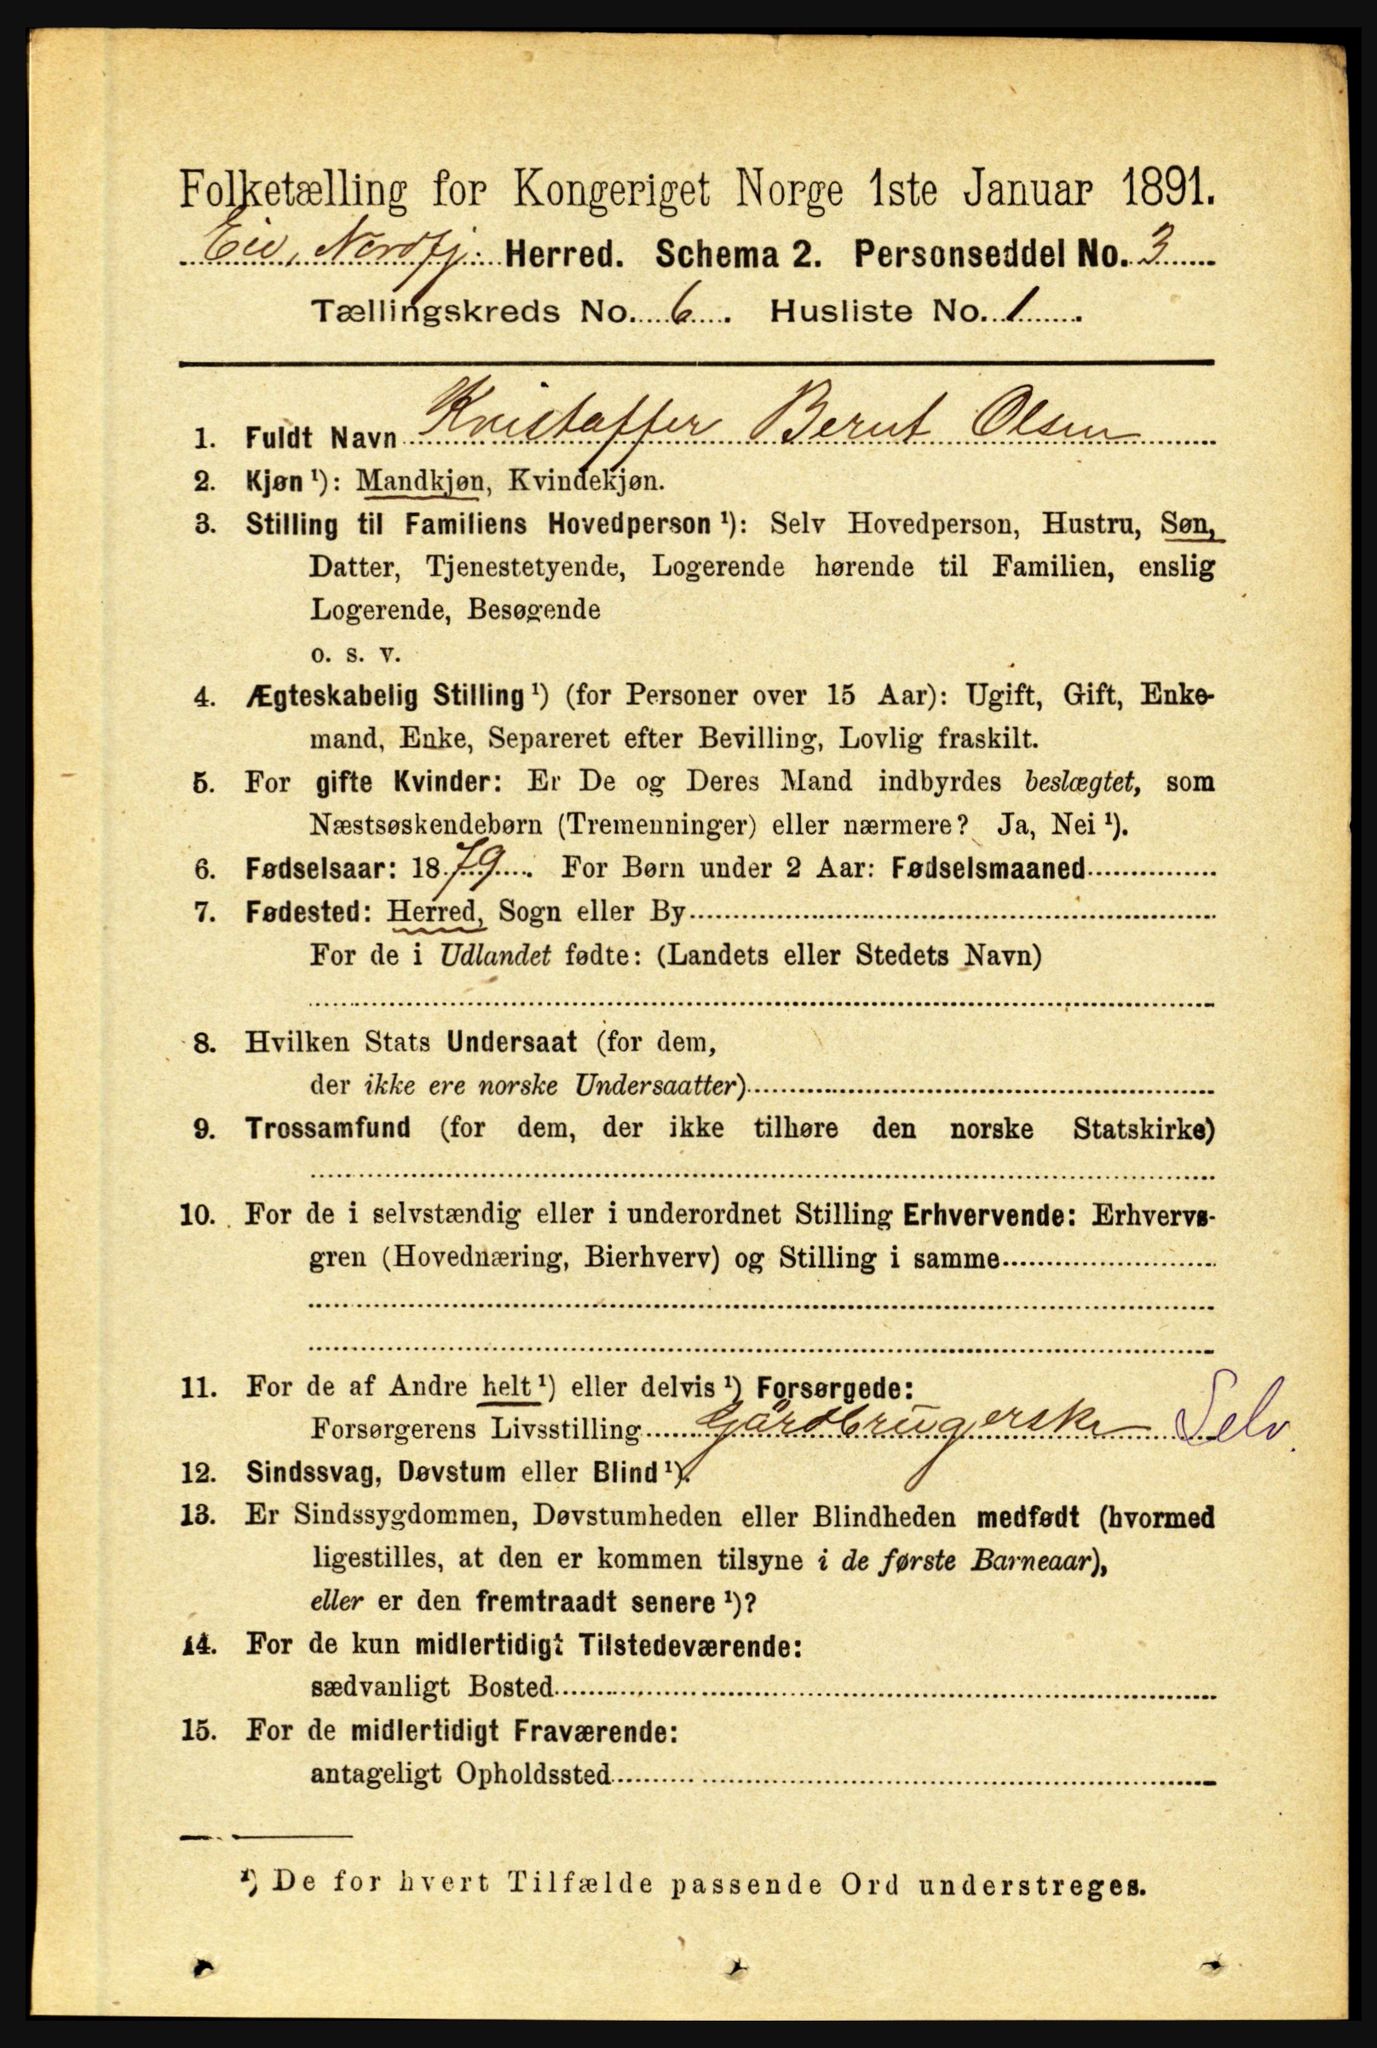 Folketælling for Kongeriget Norge 1ste Januar 1891.
Eid, Nordfj. Herred. Schema 2. Personseddel No. 3
Tællingskreds No. 6. Husliste No. 1.
1. Fuldt Navn Kristoffer Bernt Olsen
2. Kjøn ¹): Mandkjøn, Kvindekjøn.
3. Stilling til Familiens Hovedperson ¹): Selv Hovedperson, Hustru, Søn,
Datter, Tjenestetyende, Logerende hørende til Familien, enslig
Logerende, Besøgende
o. s. v.
4. Ægteskabelig Stilling ¹) (for Personer over 15 Aar): Ugift, Gift, Enke-
mand, Enke, Separeret efter Bevilling, Lovlig fraskilt.
5. For gifte Kvinder: Er De og Deres Mand indbyrdes beslægtet, som
Næstsøskendebørn (Tremenninger) eller nærmere? Ja, Nei ¹).
6. Fødselsaar: 1879. For Børn under 2 Aar: Fødselsmaaned
7. Fødested: Herred, Sogn eller By
For de i Udlandet fødte: (Landets eller Stedets Navn)
8. Hvilken Stats Undersaat (for dem,
der ikke ere norske Undersaatter)
9. Trossamfund (for dem, der ikke tilhøre den norske Statskirke)
10. For de i selvstændig eller i underordnet Stilling Erhvervende: Erhvervs-
gren (Hovednæring, Bierhverv) og Stilling i samme
11. For de af Andre helt ¹) eller delvis ¹) Forsørgede:
Forsørgerens Livsstilling Gårdbrugerske Selv.
12. Sindssvag, Døvstum eller Blind ¹).
13. Er Sindssygdommen, Døvstumheden eller Blindheden medfødt (hvormed
ligestilles, at den er kommen tilsyne i de første Barneaar),
eller er den fremtraadt senere ¹)?
14. For de kun midlertidigt Tilstedeværende:
sædvanligt Bosted
15. For de midlertidigt Fraværende:
antageligt Opholdssted
¹) De for hvert Tilfælde passende Ord understreges.